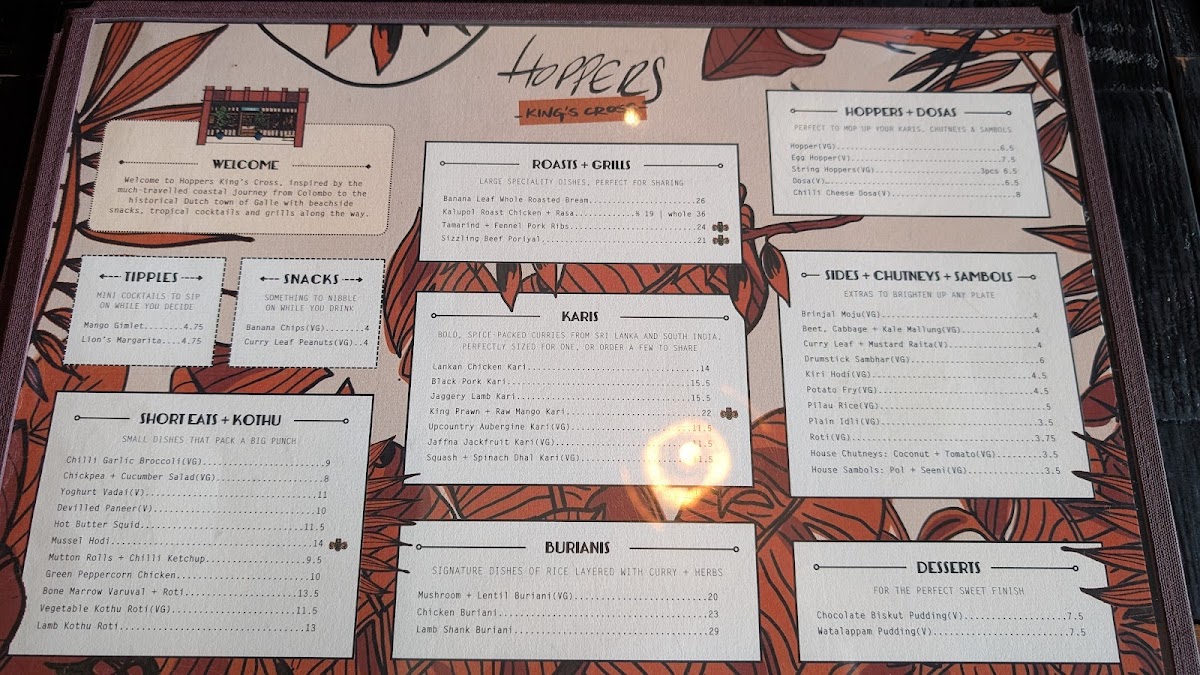 HOPPERS
-KING'S CROSS-
WELCOME
Welcome to Hoppers King's Cross, inspired by the
much-travelled coastal journey from Colombo to the
historical Dutch town of Galle with beachside
snacks, tropical cocktails and grills along the way.
TIPPLES
MINI COCKTAILS TO SIP
ON WHILE YOU DECIDE
Mango Gimlet........4.75
Lion's Margarita....4.75
SNACKS
SOMETHING TO NIBBLE
ON WHILE YOU DRINK
Banana Chips(VG)........4
Curry Leaf Peanuts(VG)..4
SHORT EATS + KOTHU
SMALL DISHES THAT PACK A BIG PUNCH
Chilli Garlic Broccoli(VG)........................9
Chickpea + Cucumber Salad(VG).....................8
Yoghurt Vadai(V).................................11
Devilled Paneer(V)...............................10
Hot Butter Squid.................................11.5
Mussel Hodi......................................14
Mutton Rolls + Chilli Ketchup....................9.5
Green Peppercorn Chicken.........................10
Bone Marrow Varuval + Roti.......................13.5
Vegetable Kothu Roti(VG).........................11.5
Lamb Kothu Roti..................................13
ROASTS + GRILLS
LARGE SPECIALITY DISHES, PERFECT FOR SHARING
Banana Leaf Whole Roasted Bream..................26
Kalupol Roast Chicken + Rasa...........½ 19 | whole 36
Tamarind + Fennel Pork Ribs......................24
Sizzling Beef Poriyal............................21
KARIS
BOLD, SPICE-PACKED CURRIES FROM SRI LANKA AND SOUTH INDIA.
PERFECTLY SIZED FOR ONE, OR ORDER A FEW TO SHARE
Lankan Chicken Kari..............................14
Black Pork Kari..................................15.5
Jaggery Lamb Kari................................15.5
King Prawn + Raw Mango Kari......................22
Upcountry Aubergine Kari(VG).....................11.5
Jaffna Jackfruit Kari(VG)........................11.5
Squash + Spinach Dhal Kari(VG)
BURIANIS
SIGNATURE DISHES OF RICE LAYERED WITH CURRY + HERBS
Mushroom + Lentil Buriani(VG)....................20
Chicken Buriani..................................23
Lamb Shank Buriani...............................29
HOPPERS + DOSAS
PERFECT TO MOP UP YOUR KARIS, CHUTNEYS & SAMBOLS
Hopper(VG).......................................6.5
Egg Hopper(V)....................................7.5
String Hoppers(VG)..........................3pcs 6.5
Dosa(V)..........................................6.5
Chilli Cheese Dosa(V)............................8
SIDES + CHUTNEYS + SAMBOLS
EXTRAS TO BRIGHTEN UP ANY PLATE
Brinjal Moju(VG).................................4
Beet, Cabbage + Kale Mallung(VG).................4
Curry Leaf + Mustard Raita(V)....................4
Drumstick Sambhar(VG)............................6
Kiri Hodi(VG)....................................4.5
Potato Fry(VG)...................................4.5
Pilau Rice(VG)...................................5
Plain Idli(VG)...................................3.5
Roti(VG).........................................3.75
House Chutneys: Coconut + Tomato(VG).............3.5
House Sambols: Pol + Seeni(VG)...................3.5
DESSERTS
FOR THE PERFECT SWEET FINISH
Chocolate Biskut Pudding(V)......................7.5
Watalappam Pudding(V)............................7.5